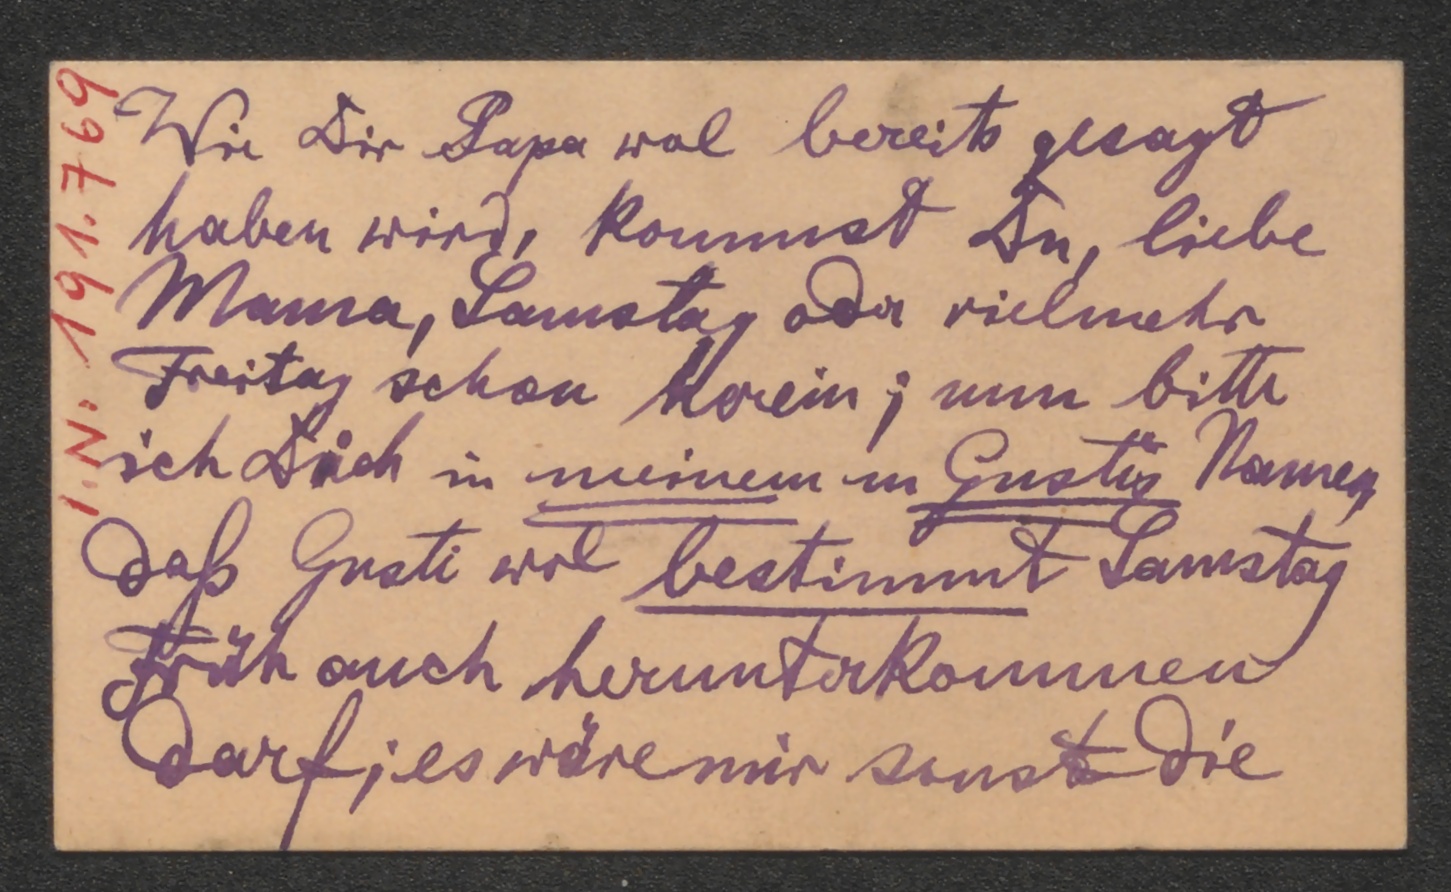 I.N. 191.769
Wie Dir Papa wol bereits gesagt
haben wird, kommst Du, liebe
Mama, Samstag oder vielmehr
Freitag schon herein; nun bitte
ich Dich in meinem u Gustis Namen,
daß Gusti wol bestimmt Samstag
früh auch herunterkommen
darf; es wäre mir sonst die